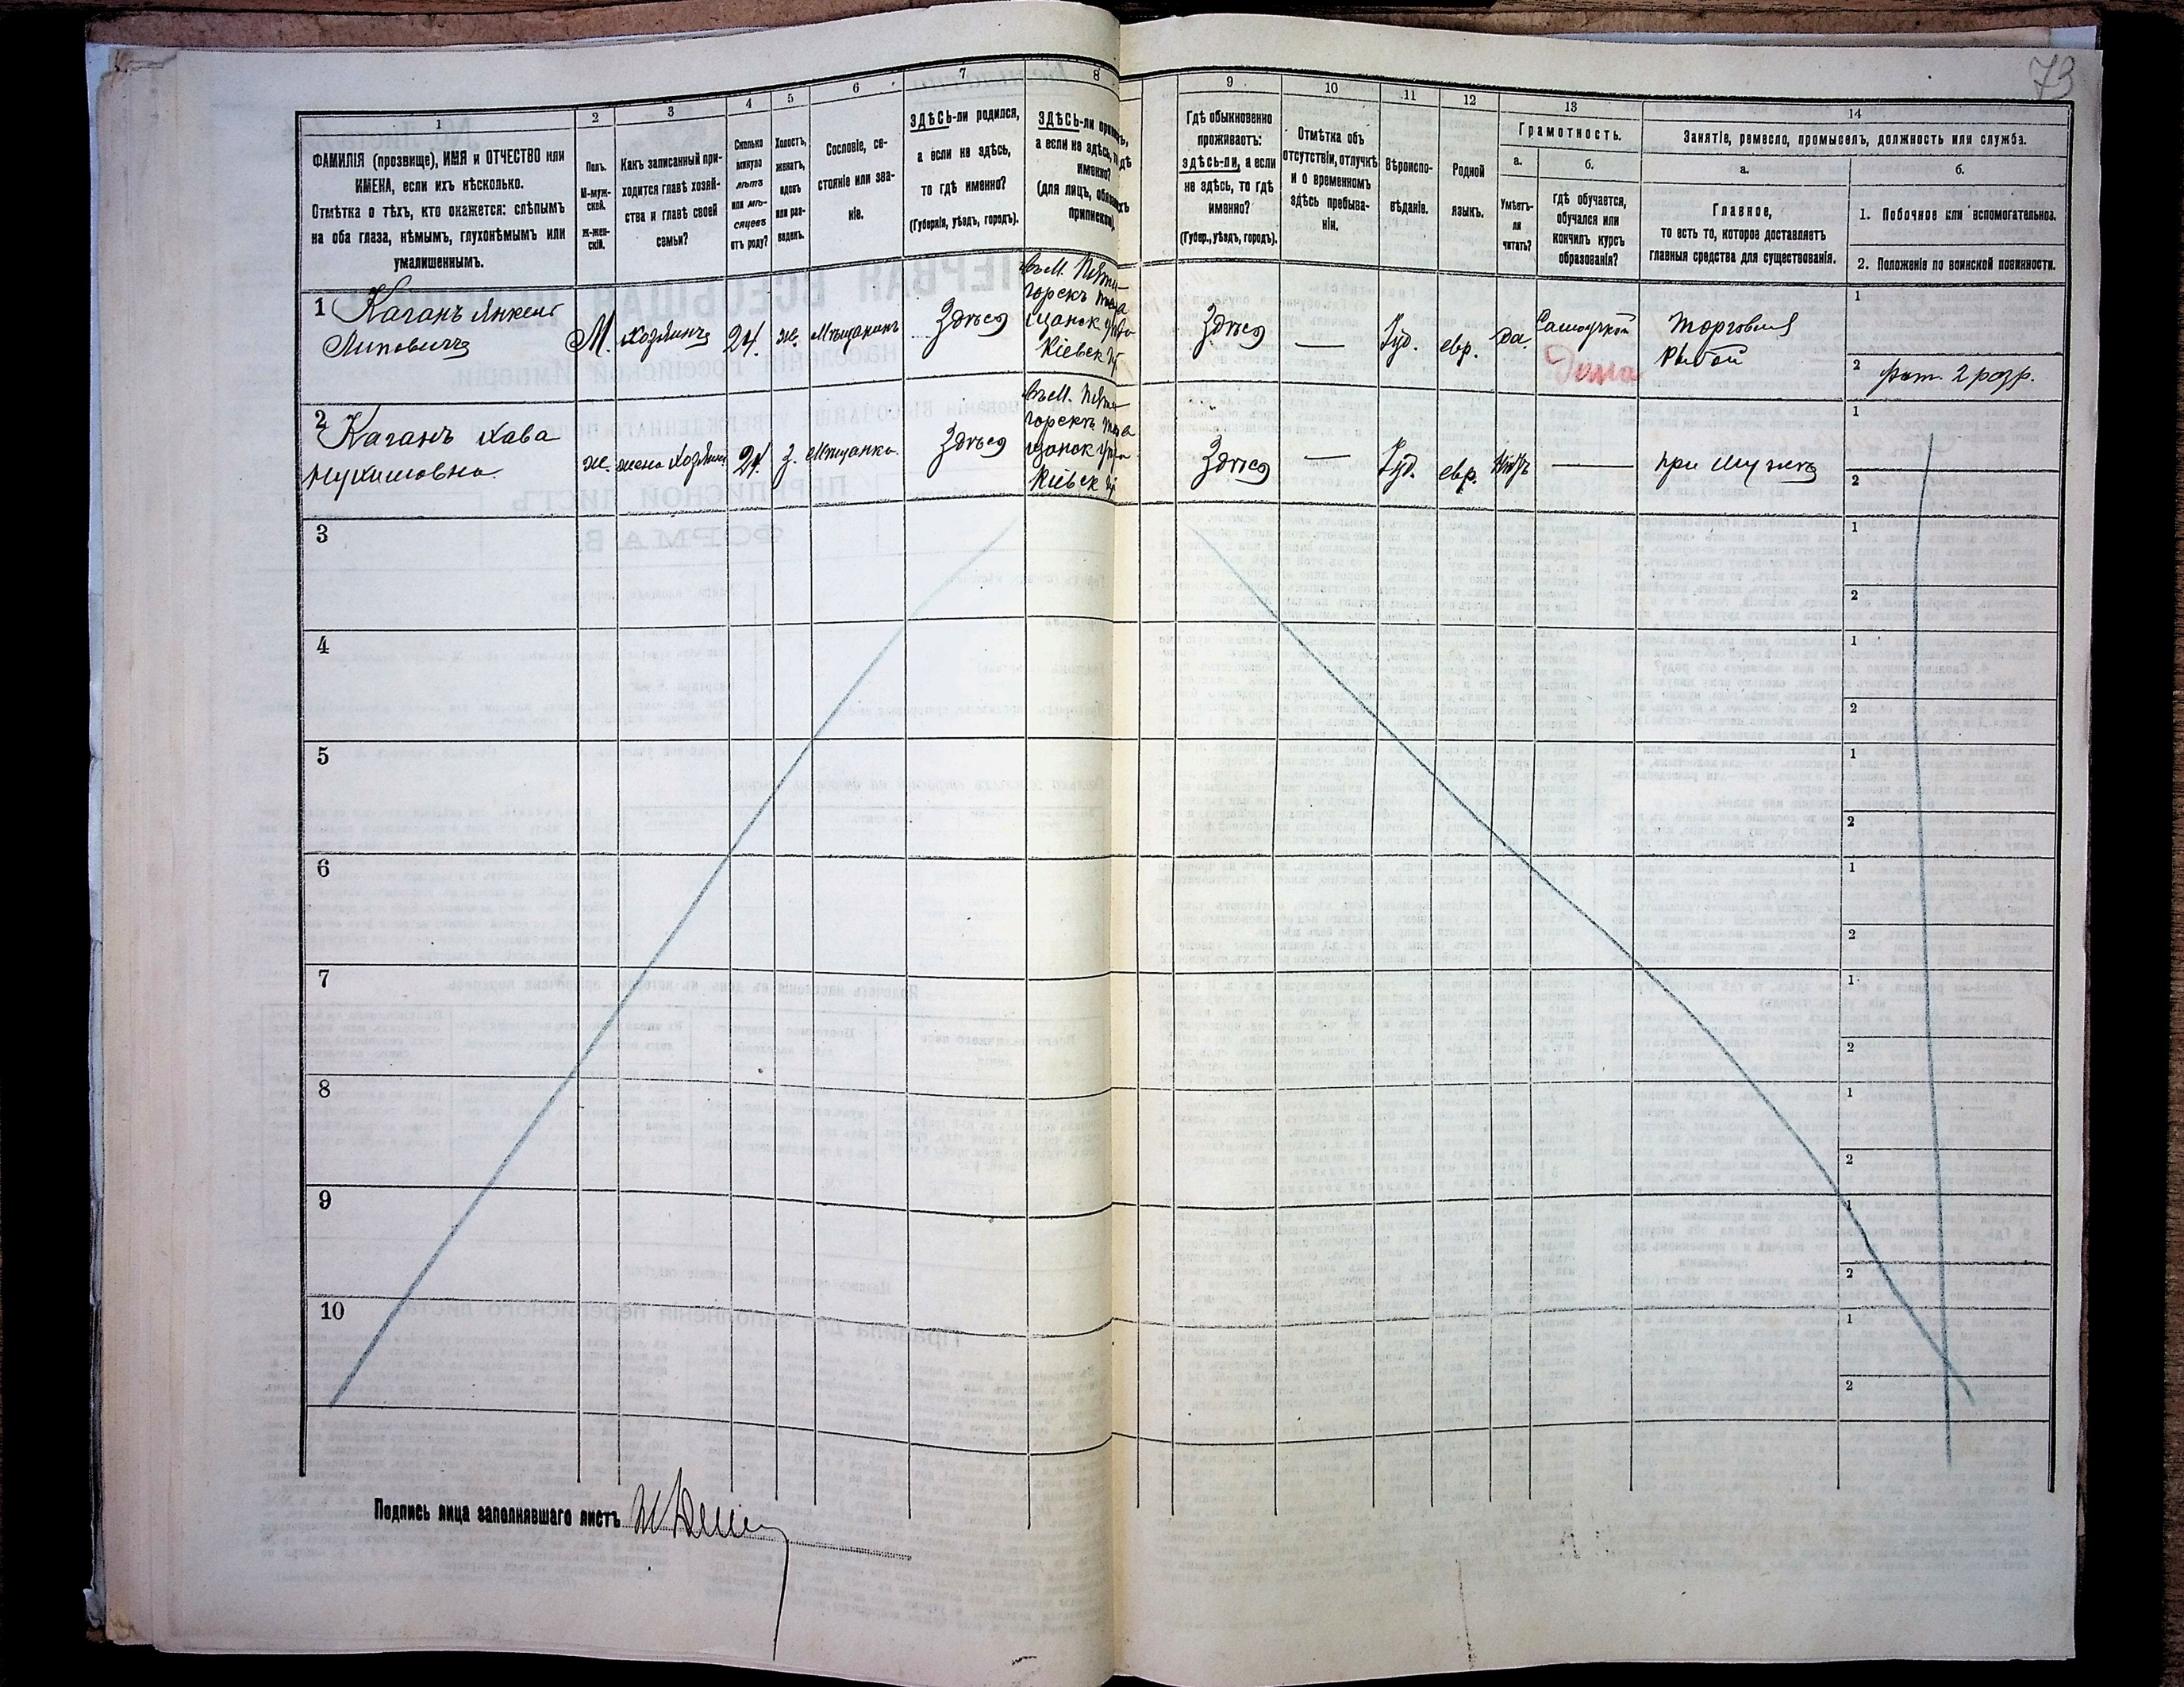 73
1
2
3
4
5
6
7
8
9
10
11
12
13
14
ФАМИЛІЯ (прозвище), ИМЯ и ОТЧЕСТВО или
ИМЕНА, если ихъ нѣсколько.
Отмѣтка о тѣхъ, кто окажется: слѣпымъ
на оба глаза, нѣмымъ, глухонѣмымъ или
умалишеннымъ.
Полъ.
М-муж-
ской.
Ж-жен-
скій.
Какъ записанный при-
ходится главѣ хозяй-
ства и главѣ своей
семьи?
Сколько
минуло
лѣтъ
или мѣ-
сяцевъ
отъ роду?
Холостъ,
женатъ,
вдовъ
или раз-
веденъ.
Сословіе, со-
стояніе или зва-
ніе.
ЗДѢСЬ-ли родился,
а если не здѣсь,
то гдѣ именно?
(Губернія, уѣздъ, городъ).
ЗДѢСЬ-ли
а если не здѣсь,
именно?
(для лицъ,
Гдѣ обыкновенно
проживаетъ:
здѣсь-ли, а если
не здѣсь, то гдѣ
именно?
(Губер., уѣздъ, городъ).
Отмѣтка объ
отсутствіи, отлучкѣ
и о временномъ
здѣсь пребыва-
ніи.
Вѣроиспо-
вѣданіе.
Родной
языкъ.
Грамотность.
а.
Умѣетъ-
ли
читать?
б.
Гдѣ обучается,
обучался или
кончилъ курсъ
образованія?
Занятіе, ремесло, промыселъ, должность или служба.
а.
Главное,
то есть то, которое доставляетъ
главныя средства для существованія.
б.
1. Побочное или вспомогательное.
2. Положеніе по воинской повинности.
1 Каганъ Янкель
Липовичъ
М.
хозяинъ
24
ж.
Мѣщанинъ
Здѣсь
Въ М. Пяти-
горскъ
Кіевск
Здѣсь
—
Іуд.
евр.
да.
Самоучкой
Дома
торговля
рыбой
1
2 рат. 2 разр.
2 Каганъ Хава
ж.
жена хозяина
24
з.
Мѣщанка
Здѣсь
Въ М. Пяти-
горскъ
Кіевск
Здѣсь
—
Іуд.
евр.
нѣтъ
—
при мужѣ
1
2
3
1
2
4
1
2
5
1
2
6
1
2
7
1
2
8
1
2
9
1
2
10
1
2
Подпись лица заполнявшаго листъ